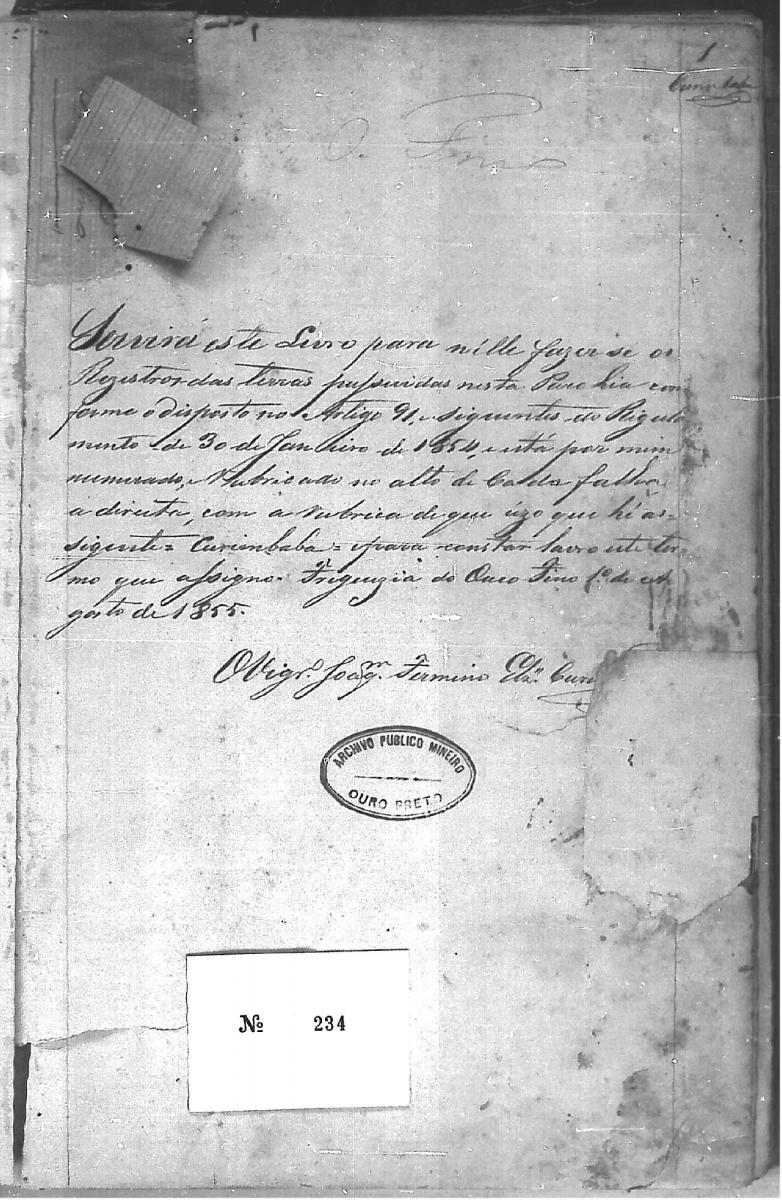 1
Curimbaba
O. Fino
Servirá este Livro para nélle fazer-se os
Rezistros das terras pussuidas nesta Parochia con
forme o disposto no Artigo 91, e siguentes do Rigula
mento de 30 de Janeiro de 1854, e está por mim
numerado, e rubricado no alto de Cada fôlha
a direita, com a rubrica de que úzo que hé a se-
siguente = Curimbaba = e para constar lavro este ter-
mo que assigno. Freguezia do Ouro Fino 1º de A
gosto de 1855.
O Vigrº Joaqm Fermino Glz Curi
ARCHIVO PUBLICO MINEIRO
OURO PRETO
Nº 234